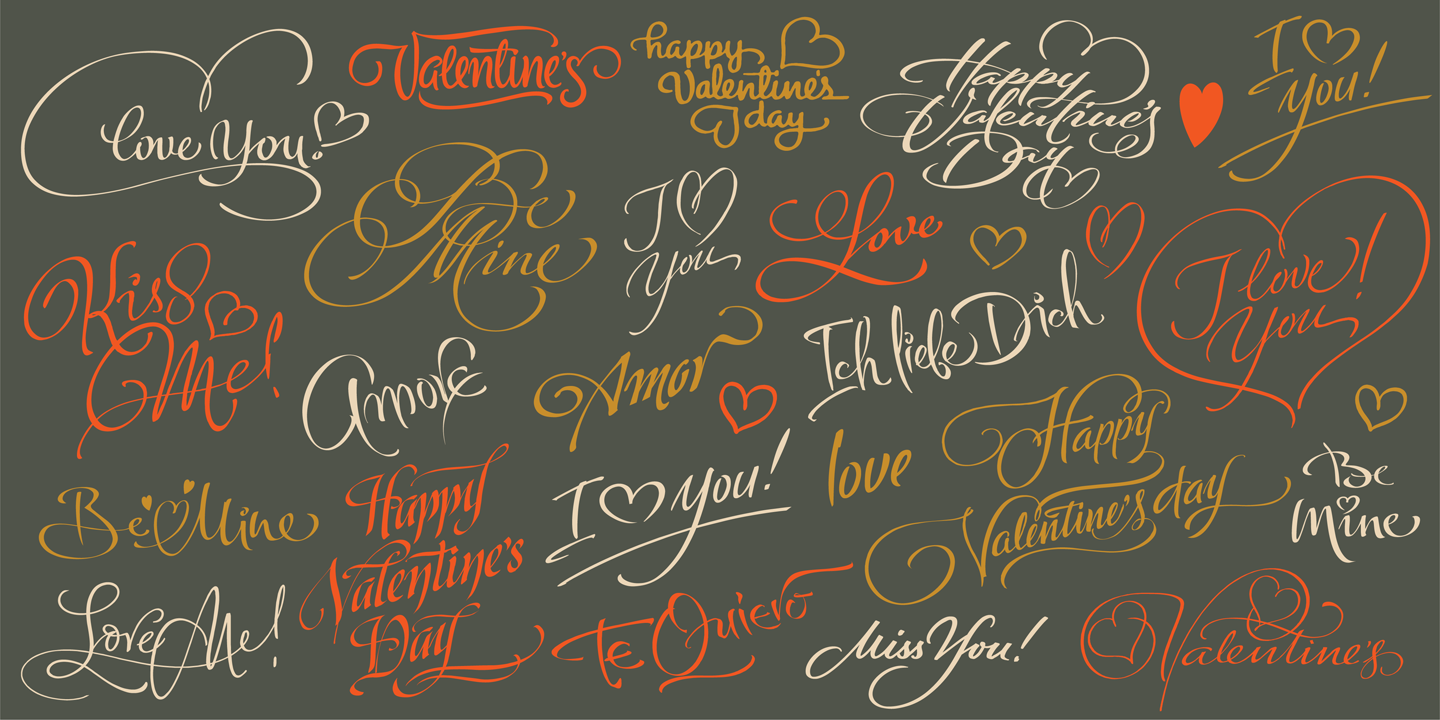 love You!
Valentine's
happy
Valentine's
day
Happy
Valentine's
Day
I
you!
Be
Mine
I
You
Love
I love!
You
Kiss
Me!
Amore
Amor
Ich liebe Dich
Be Mine
Happy
Valentine's
Day
I you!
love
Happy
Valentine's day
Be
Mine
Love Me!
Te Quiero
Miss You!
Valentine's